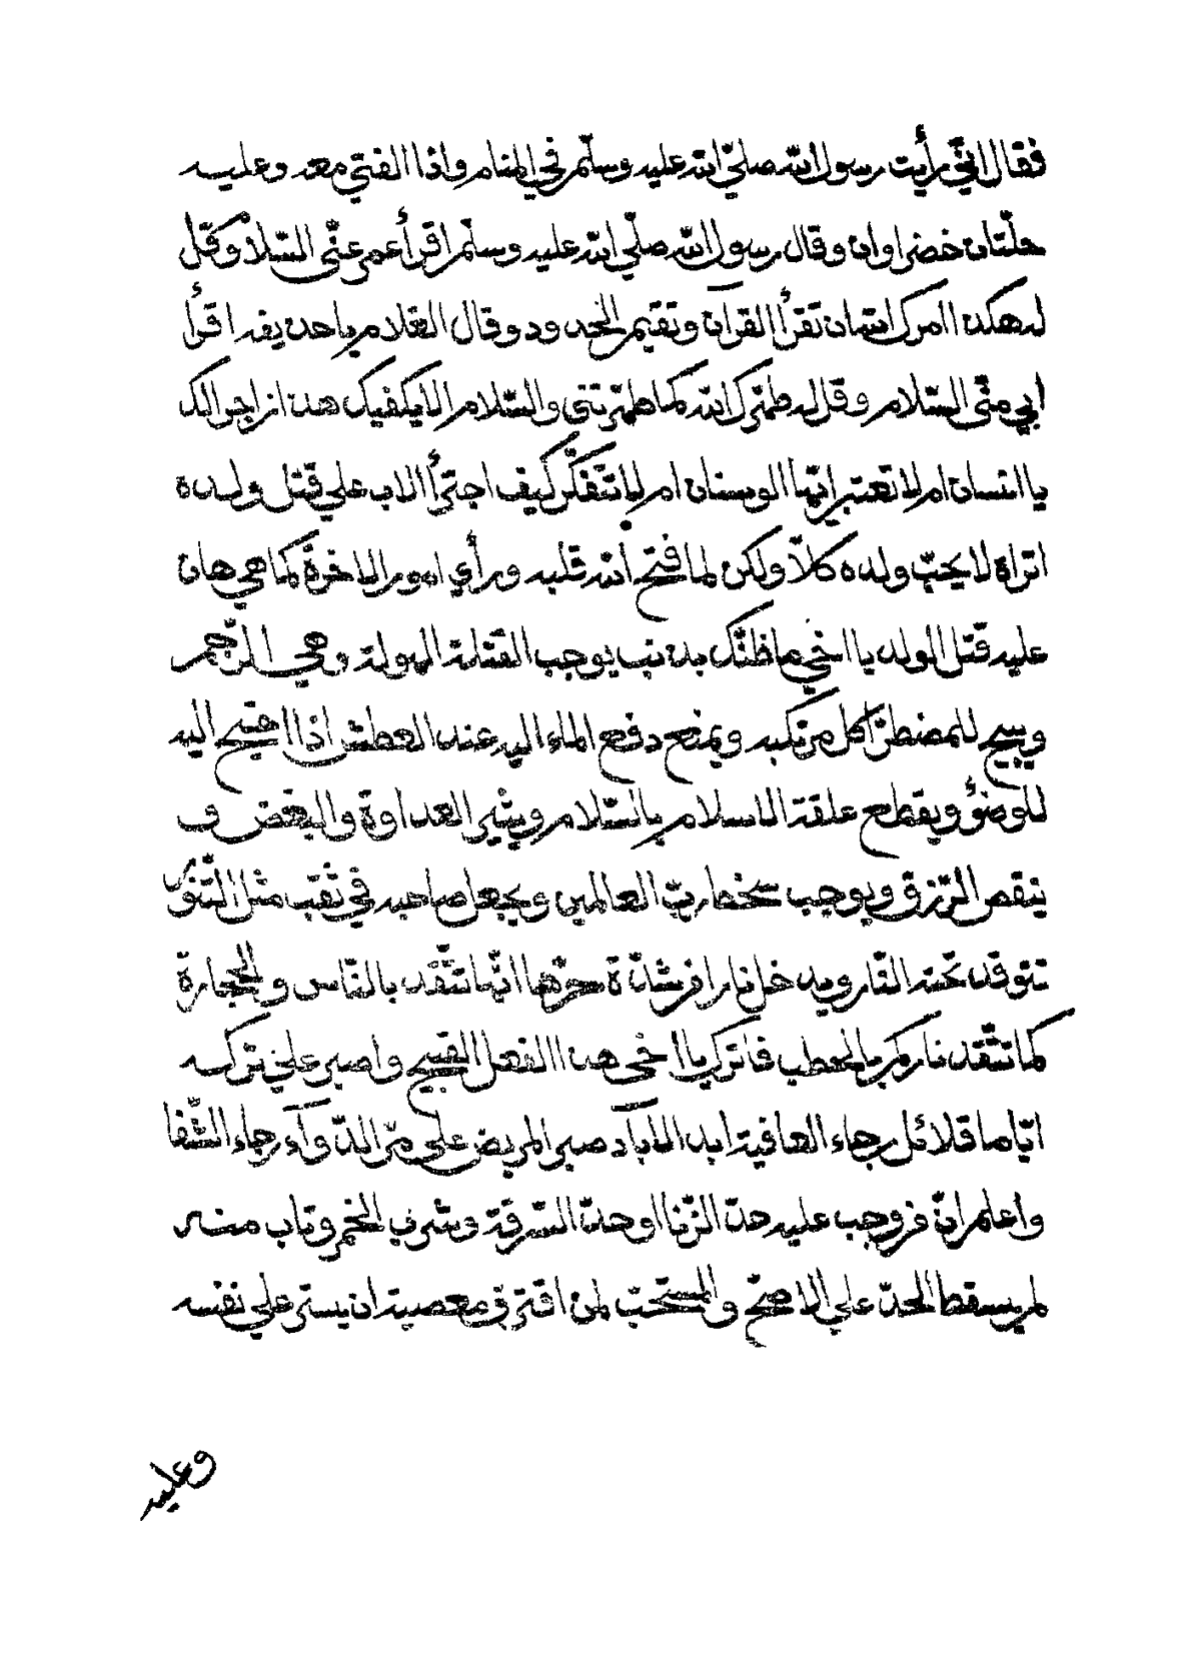 فقال اني رأيت رسول الله صلي الله عليه وسلم في المنام واذا الفتي معه وعليه
حلتان خضراوان وقال رسول الله صلي الله عليه وسلم اقرأ عمر عني السلام وقل
له هكذا امرك الله ان تقرأ القرآن وتقيم الحدود وقال الغلام يا حذيفه اقرأ
ابي مني السلام وقل له طهرك الله كما طهرتني والسلام الا يكفيك هذا زاجرا لك
يا انسان ام لا تعتبر ايها الوسنان ام لا تتفكر كيف اجترأ الاب علي قتل ولده
اتراه لا يحب ولده كلا ولكن لما فتح الله قلبه ورأي امور الاخرة كما هي هان
عليه قتل الولد يا اخي ما ظنك بذنب يوجب القتلة المهولة وهي الرجم
ويبيح للمضطر اكل مرتكبه ويمنع دفع الماء اليه عند العطش اذا احتيج اليه
للوضؤ ويقطع علقة الاسلام بالسلام ويثير العداوة والبغض و
ينقص الرزق ويوجب سخط رب العالمين ويجعل صاحبه في ثقب مثل التنور
تتوقد تحته النار ويدخل نارا حرها انها تتقد بالناس والحجارة
كما تتقد ناركم بالحطب فاترك يا اخي هذا الفعل القبيح واصبر علي تركه
اياما قلائل رجاء العافية ابد الآباد صبر المريض علي مر الدوآء رجاء الشفا
واعلم ان من وجب عليه حد الزنا او حد السرقة وشرب الخمر وتاب منه
لم يسقط الحد علي الاصح والمستحب لمن اقترف معصية ان يستر علي نفسه
وعليه